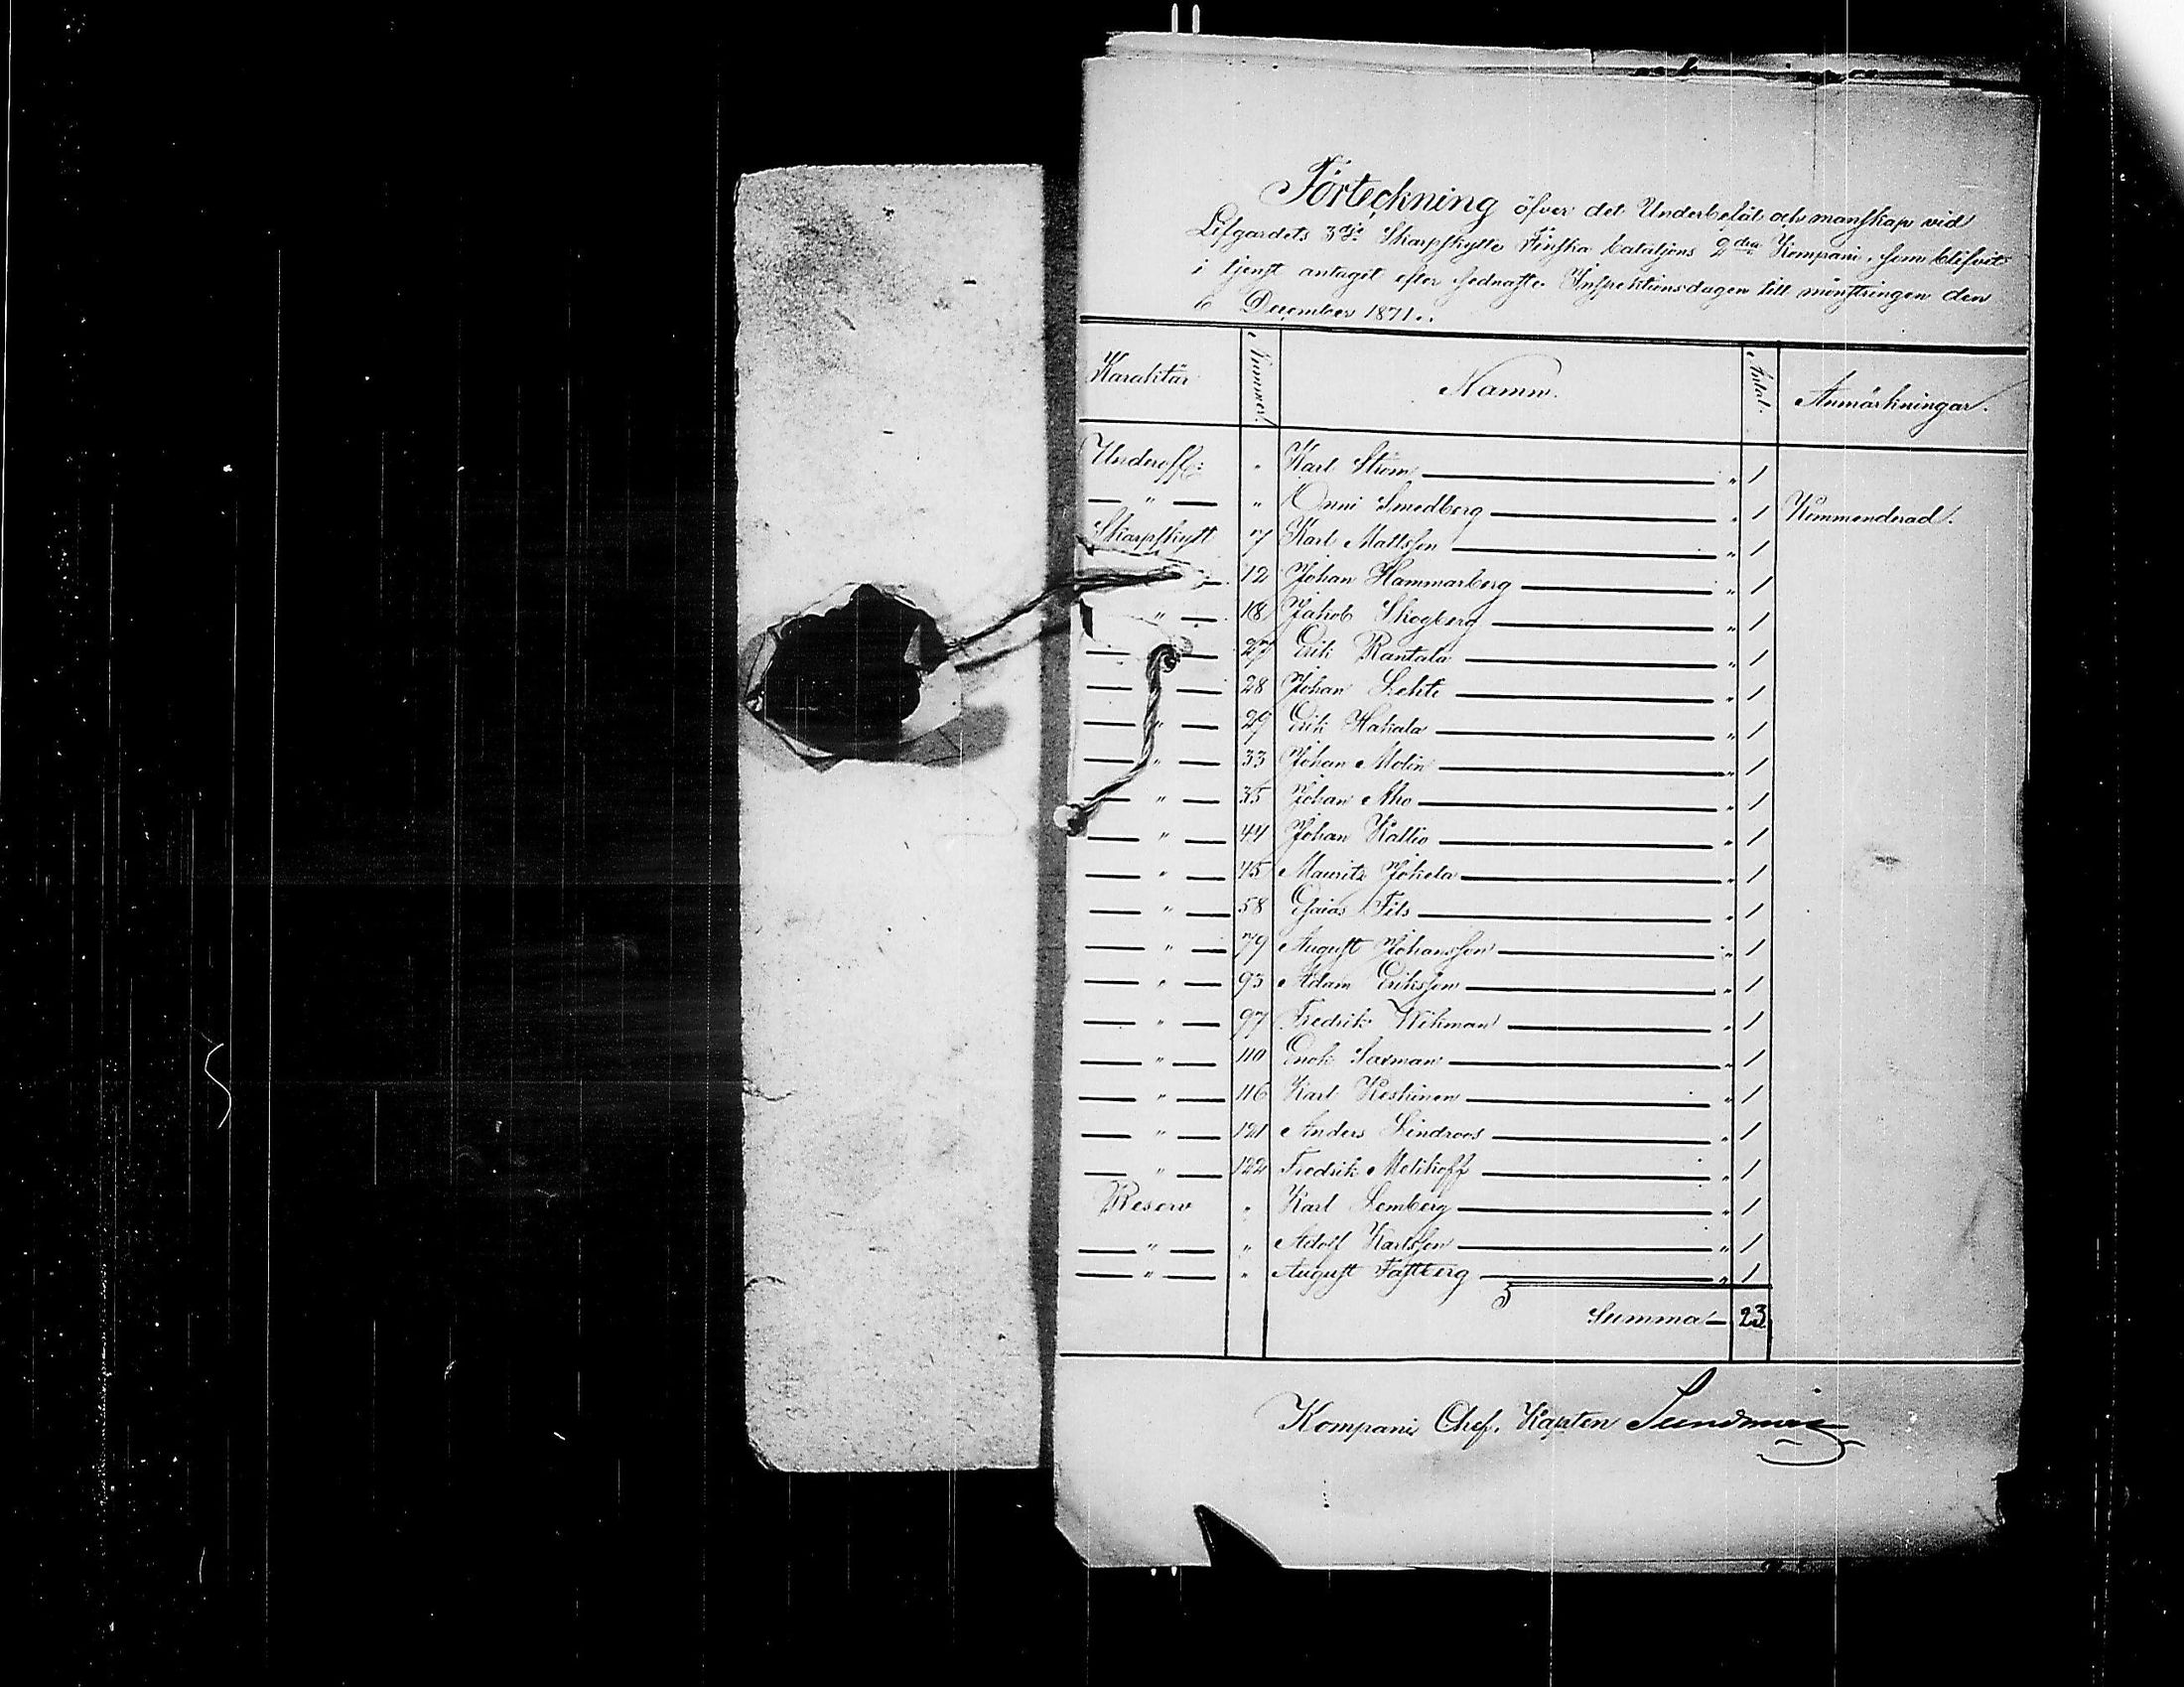 Förteckning öfver det Underbefäl och manskap vid
Lifgardets 3dje Skarpskytte Finska bataljons 2dra Kompani, som blifvit
i tjenst antaget efter sednaste Inspektionsdagen till mönstringen den
6 December 1871.
Karaktär Nummer. Namn. Antal. Anmärkningar.
Underoff: " Karl Ström " 1
— " — " Onni Smedberg " 1 Kommenderad.
Skarpskytt 7 Karl Mattsson " 1
12 Johan Hammarberg " 1
" — 18 Jakob Skogberg " 1
— " — 27 Erik Rantala " 1
— " — 28 Johan Lehti " 1
— " — 29 Erik Hakala " 1
— " — 33 Johan Molin " 1
— " — 35 Johan Aho " 1
— " — 44 Johan Kallio " 1
— " — 45 Mauritz Jokela " 1
— " — 58 Esaias Fils " 1
— " — 79 August Johansson " 1
— " — 93 Adam Eriksson " 1
— " — 97 Fredrik Wikman " 1
— " — 110 Enok Saxman " 1
— " — 116 Karl Keskinen " 1
— " — 121 Anders Lindroos " 1
— " — 122 Fredrik Melikoff " 1
Reserv " Karl Lemberg " 1
— " — " Adolf Karlsson " 1
— " — " August Fastberg " 1
Summa — 23
Kompani Chef, Kapten